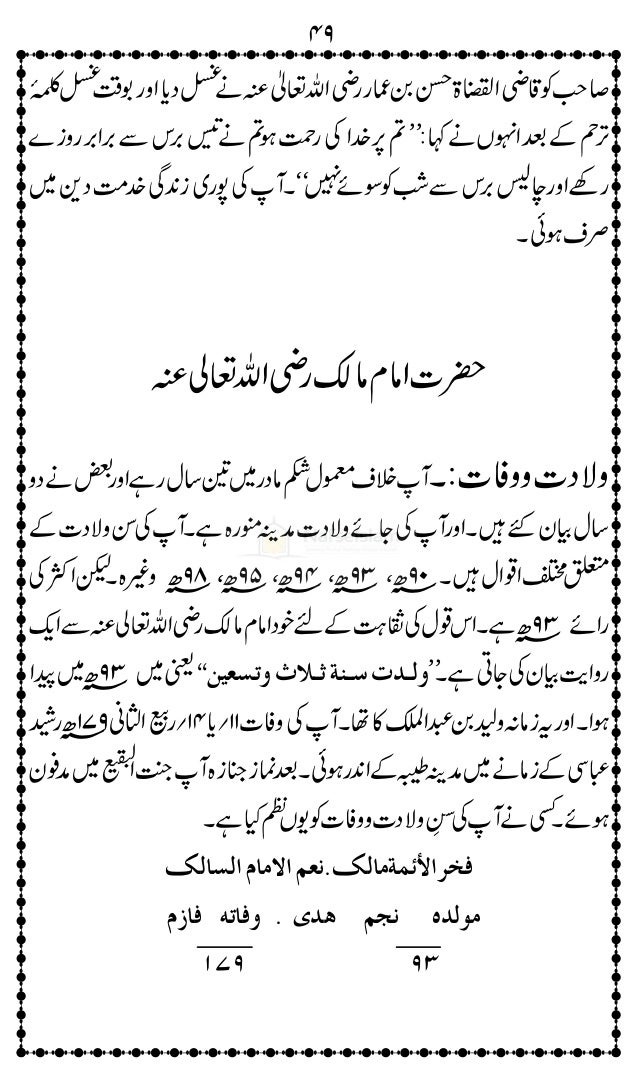 ۴۹
صاحب کو قاضی القضاة حسن بن عمار رضی اللہ تعالیٰ عنہ نے غسل دیا اور بوقت غسل کلمۂ
ترحم کے بعد انہوں نے کہا: ’’تم پر خدا کی رحمت ہو تم نے تیس برس سے برابر روزے
رکھے اور چالیس برس سے شب کو سوئے نہیں‘‘۔ آپ کی پوری زندگی خدمت دین میں
صرف ہوئی۔
حضرت امام مالک رضی اللہ تعالی عنہ
ولادت ووفات:۔ آپ خلاف معمول شکم مادر میں تین سال رہے اور بعض نے دو
سال بیان کئے ہیں۔ اور آپ کی جائے ولادت مدینہ منورہ ہے۔ آپ کی سن ولادت کے
متعلق مختلف اقوال ہیں۔ ۹۰ھ، ۹۳ھ، ۹۴ھ، ۹۵ھ، ۹۸ھ وغیرہ۔ لیکن اکثر کی
رائے ۹۳ھ ہے۔ اس قول کی ثقاہت کے لئے خود امام مالک رضی اللہ تعالی عنہ سے ایک
روایت بیان کی جاتی ہے۔ ’’ولدت سنة ثلاث وتسعین‘‘ یعنی میں ۹۳ھ میں پیدا
ہوا۔ اور یہ زمانہ ولید بن عبدالملک کا تھا۔ آپ کی وفات ۱۱/ یا ۱۴/ ربیع الثانی ۱۷۹ھ رشید
عباسی کے زمانے میں مدینہ طیبہ کے اندر ہوئی۔ بعد نماز جنازہ آپ جنت البقیع میں مدفون
ہوئے۔ کسی نے آپ کی سنِ ولادت ووفات کو یوں نظم کیا ہے۔
فخر الأئمة مالک . نعم الامام السالک
مولده نجم هدی . وفاته فازم
۹۳ ۱۷۹